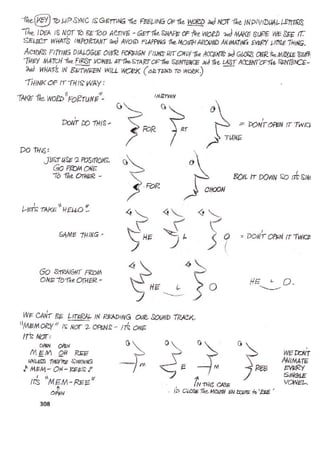 The KEY to LIP SYNC IS GETTING The FEELING OF the WORD and NOT the INDIVIDUAL LETTERS
The IDEA IS NOT TO BE TOO ACTIVE - GET the SHAPE OF the WORD and MAKE SURE WE SEE IT.
SELECT WHATS IMPORTANT and AVOID FLAPPING the MOUTH AROUND ANIMATING EVERY LITTLE THING.
ACTORS FITTING DIALOGUE OVER FOREIGN FILMS HIT ONLY the ACCENTS and GLOSS OVER the MIDDLE STUFF.
THEY MATCH the FIRST VOWEL AT the START OF the SENTENCE and the LAST ACCENT OF the SENTENCE -
and WHAT'S IN BETWEEN WILL WORK (OR TEND TO WORK.)
THINK OF IT THIS WAY:
TAKE the WORD "FORTUNE" -
INBETWEEN
DON'T DO THIS -
FOR
RT
TUNE
= DON'T OPEN IT TWICE
DO THIS:
JUST USE 2 POSITIONS.
GO FROM ONE
TO the OTHER -
FOR
CHOON
BOIL IT DOWN SO IT'S SIM
LET'S TAKE "HELLO".
SAME THING -
HE
L
O
= DON'T OPEN IT TWICE
GO STRAIGHT FROM
ONE TO the OTHER -
HE
L
O
HE L O.
WE CAN'T BE LITERAL IN READING OUR SOUND TRACK.
"MEMORY" IS NOT 2 OPENS - IT'S ONE
IT'S NOT:
OPEN OPEN
MEM OH REE
UNLESS THEY'RE SINGING
♪ MEM - OH - REES ♪
IT'S "MEM-REE"
OPEN
M
E
M
REE
WE DON'T
ANIMATE
EVERY
SINGLE
VOWEL.
IN THIS CASE
CLOSE The MOUTH EN ROUTE to "REE"
308